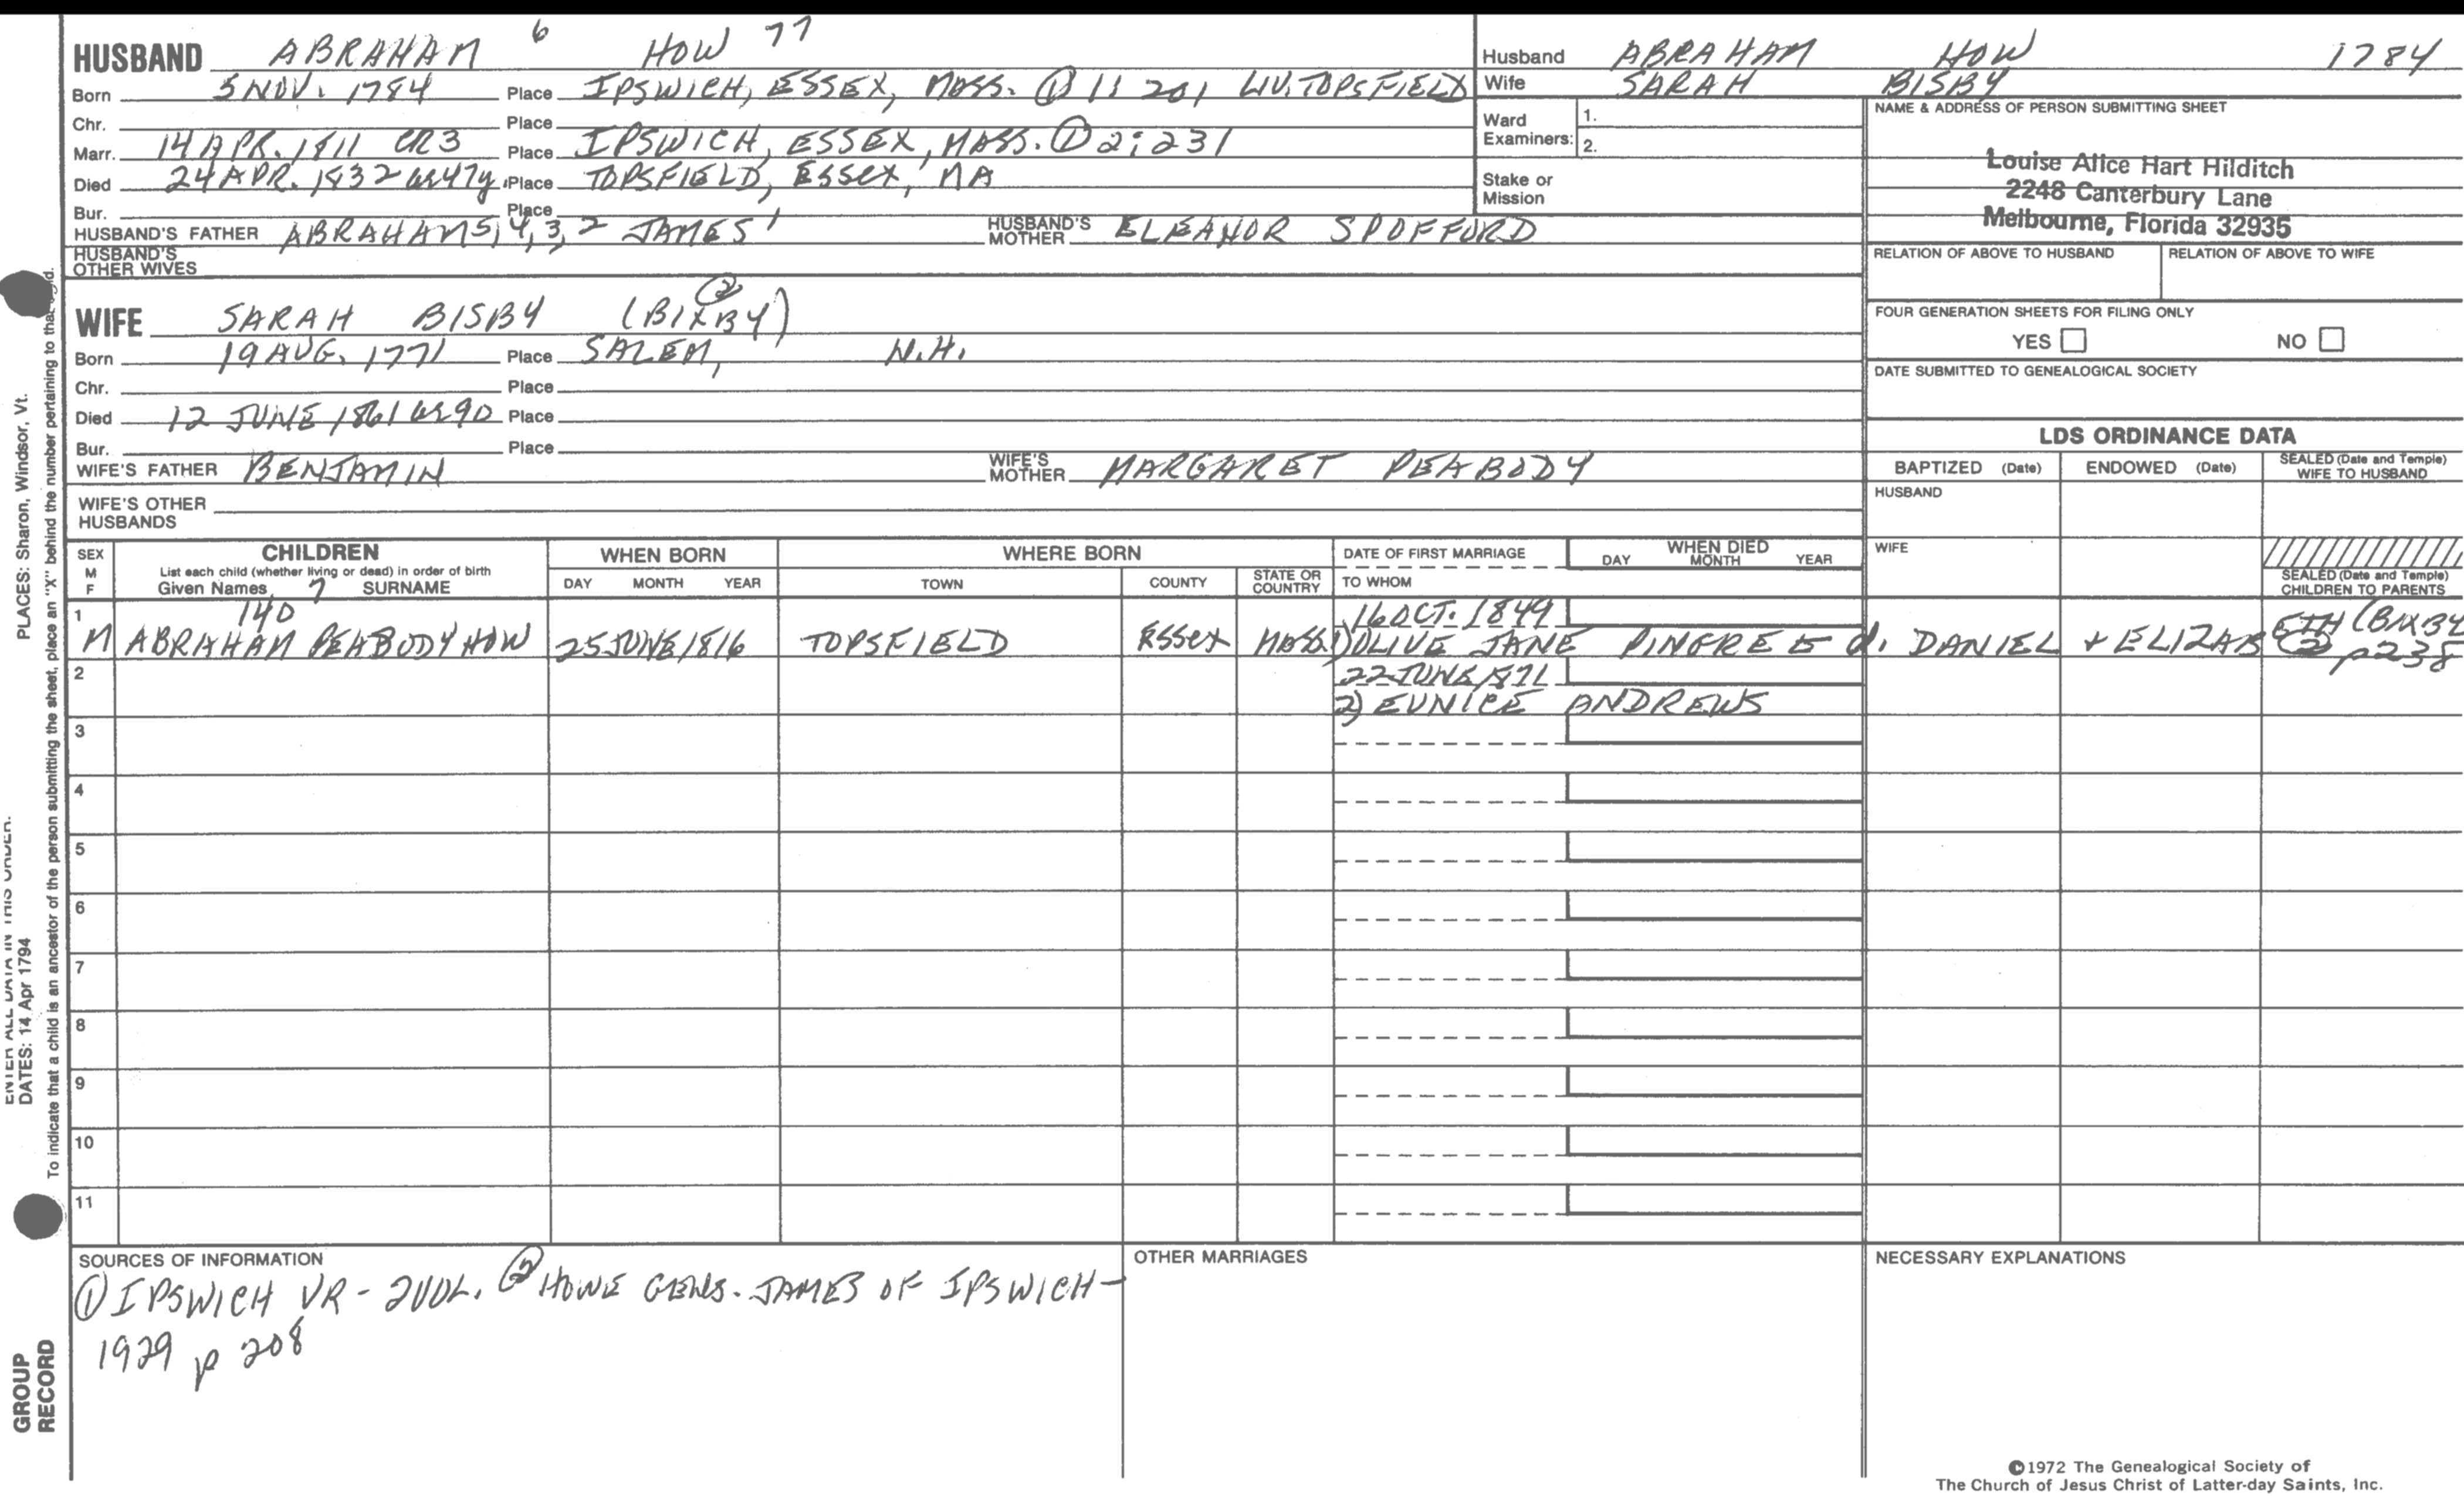 HUSBAND ABRAHAM 6 HOW 77
Born 5 NOV. 1784 Place IPSWICH, ESSEX, MASS. ① 1: 201 LIV. TOPSFIELD
Chr. Place
Marr. 14 APR. 1811 CR3 Place IPSWICH, ESSEX, MASS. ① 2: 231
Died 24 APR. 1832 47y. Place TOPSFIELD, ESSEX, MA
Bur. Place
HUSBAND'S FATHER ABRAHAM 5, 4, 3, 2 JAMES 1 HUSBAND'S MOTHER ELEANOR SPOFFORD
HUSBAND'S OTHER WIVES
WIFE SARAH BISBY (BIXBY) ②
Born 19 AUG. 1771 Place SALEM, N.H.
Chr. Place
Died 12 JUNE 1861 90 Place
Bur. Place
WIFE'S FATHER BENJAMIN WIFE'S MOTHER MARGARET PEABODY
WIFE'S OTHER HUSBANDS
Husband ABRAHAM HOW 1784
Wife SARAH BISBY
Ward Examiners: 1.
2.
Stake or Mission
NAME & ADDRESS OF PERSON SUBMITTING SHEET
Louise Alice Hart Hilditch
2248 Canterbury Lane
Melbourne, Florida 32935
RELATION OF ABOVE TO HUSBAND RELATION OF ABOVE TO WIFE
FOUR GENERATION SHEETS FOR FILING ONLY
YES NO
DATE SUBMITTED TO GENEALOGICAL SOCIETY
LDS ORDINANCE DATA
BAPTIZED (Date) ENDOWED (Date) SEALED (Date and Temple) WIFE TO HUSBAND
HUSBAND
WIFE
SEALED (Date and Temple) CHILDREN TO PARENTS
SEX M F CHILDREN WHEN BORN WHERE BORN DATE OF FIRST MARRIAGE WHEN DIED
List each child (whether living or dead) in order of birth DAY MONTH YEAR
Given Names 7 SURNAME DAY MONTH YEAR TOWN COUNTY STATE OR COUNTRY TO WHOM
1 140 16 OCT. 1849
M ABRAHAM PEABODY HOW 25 JUNE 1816 TOPSFIELD ESSEX MASS. 1) OLIVE JANE PINGREE d. DANIEL + ELIZABETH (BIXBY ② p 238
2 22 JUNE 1871
2) EUNICE ANDREWS
3
4
5
6
7
8
9
10
11
SOURCES OF INFORMATION
① IPSWICH VR - 2VOL. ② HOWE GENS. JAMES OF IPSWICH -
1929 p 208
OTHER MARRIAGES
NECESSARY EXPLANATIONS
©1972 The Genealogical Society of
The Church of Jesus Christ of Latter-day Saints, Inc.
PLACES: Sharon, Windsor, Vt.
ENTER ALL DATA IN THIS ORDER:
DATES: 14 Apr 1794
To indicate that a child is an ancestor of the person submitting the sheet, place an "X" behind the number pertaining to that
GROUP
RECORD